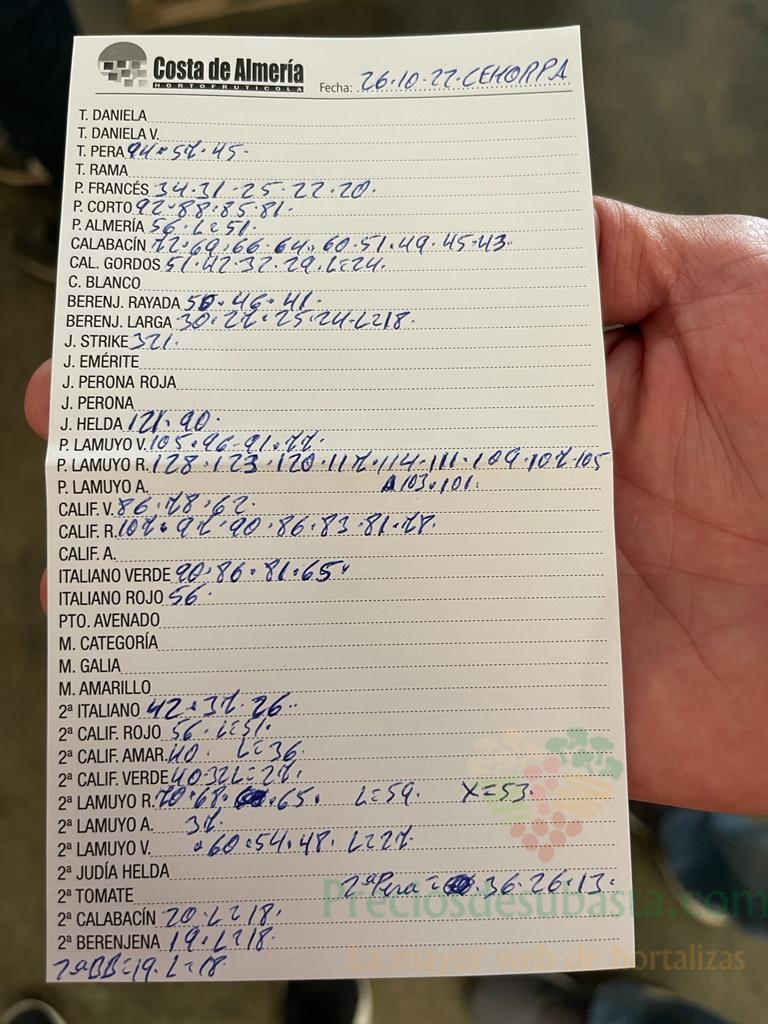 Costa de Almería
HORTOFRUTICOLA
Fecha: 26·10·22·CEHORPA
T. DANIELA
T. DANIELA V.
T. PERA 94·57·45·
T. RAMA
P. FRANCÉS 34·31·25·22·20·
P. CORTO 92·88·85·81·
P. ALMERÍA 56·L=51·
CALABACÍN 72·69·66·64·60·51·49·45·43·
CAL. GORDOS 51·42·32·29·L=24·
C. BLANCO
BERENJ. RAYADA 50·46·41·
BERENJ. LARGA 30·27·25·24·L=18·
J. STRIKE 321·
J. EMÉRITE
J. PERONA ROJA
J. PERONA
J. HELDA 121·90·
P. LAMUYO V. 105·96·91·77·
P. LAMUYO R. 128·123·120·117·114·111·109·107·105
P. LAMUYO A. 103·101·
CALIF. V. 86·78·62·
CALIF. R. 107·97·90·86·83·81·78·
CALIF. A.
ITALIANO VERDE 90·86·81·65·
ITALIANO ROJO 56·
PTO. AVENADO
M. CATEGORÍA
M. GALIA
M. AMARILLO
2ª ITALIANO 42·37·26·
2ª CALIF. ROJO 56·L=51·
2ª CALIF. AMAR. 40· L=36·
2ª CALIF. VERDE 40·32L=27·
2ª LAMUYO R. 70·68·65· L=59· X=53·
2ª LAMUYO A. 37·
2ª LAMUYO V. 60·54·48· L=27·
2ª JUDÍA HELDA
2ª TOMATE 2ªPera=36·26·13·
2ª CALABACÍN 20·L=18·
2ª BERENJENA 19·L=18·
2ªBB=19·L=18·
Preciosdesubasta.com
La mayor web de hortalizas